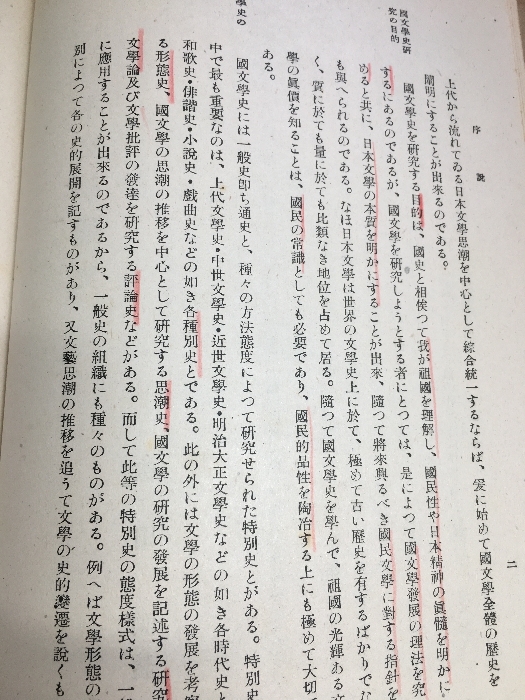 序說
二
國文學史研
究の目的
學史の
上代から流れてゐる日本文學思潮を中心として綜合統一するならば、爰に始めて國文學全體の歷史を
闡明にすることが出來るのである。
國文學史を硏究する目的は、國史と相俟つて我が祖國を理解し、國民性や日本精神の眞髓を明かに
するにあるのであるが、國文學を硏究しようとする者にとつては、是によつて國文學發展の理法を究
めると共に、日本文學の本質を明かにすることが出來、隨つて將來興るべき國民文學に對する指針を
も與へられるのである。なほ日本文學は世界の文學史上に於て、極めて古い歷史を有するばかりでな
く、質に於ても量に於ても比類なき地位を占めて居る。隨つて國文學史を學んで、祖國の光輝ある
學の眞價を知ることは、國民の常識としても必要であり、國民的品性を陶冶する上にも極めて大切
ある。
國文學史には一般史卽ち通史と、種々の方法態度によつて硏究せられた特別史とがある。特別史
中で最も重要なのは、上代文學史・中世文學史・近世文學史・明治大正文學史などの如き各時代史と
和歌史・俳諧史・小說史・戲曲史などの如き各種別史とである。此の外には文學の形態の發展を考察
る形態史、國文學の思潮の推移を中心として硏究する思潮史、國文學の硏究の發展を記述する硏究
文學論及び文學批評の發達を硏究する評論史などがある。而して此等の特別史の態度樣式は、一
に應用することが出來るのであるから、一般史の組織にも種々のものがある。例へば文學形態の
別によつて各の史的展開を記すものがあり、又文藝思潮の推移を追うて文學の史的變遷を說くも